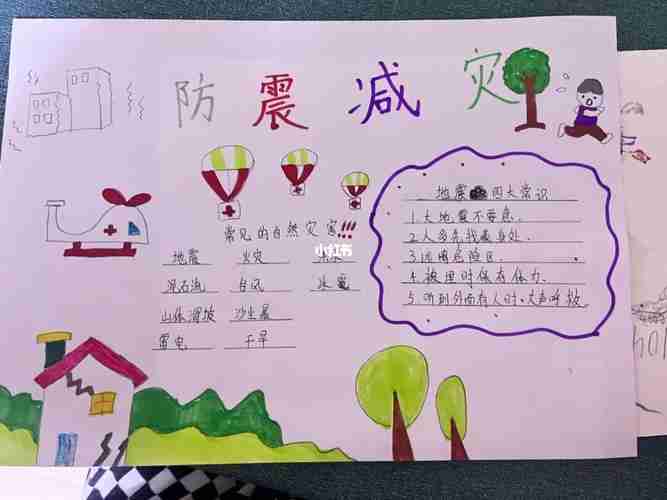 防震减灾
常见的自然灾害!!!
小红书
地震 火灾
泥石流 台风 冰雹
山体滑坡 沙尘暴
雷电 干旱
地震 四大常识
1.大地震不要急.
2.人多先找藏身处.
3.远离危险区.
4.被埋时保存体力.
5.听到外面有人时,大声呼救